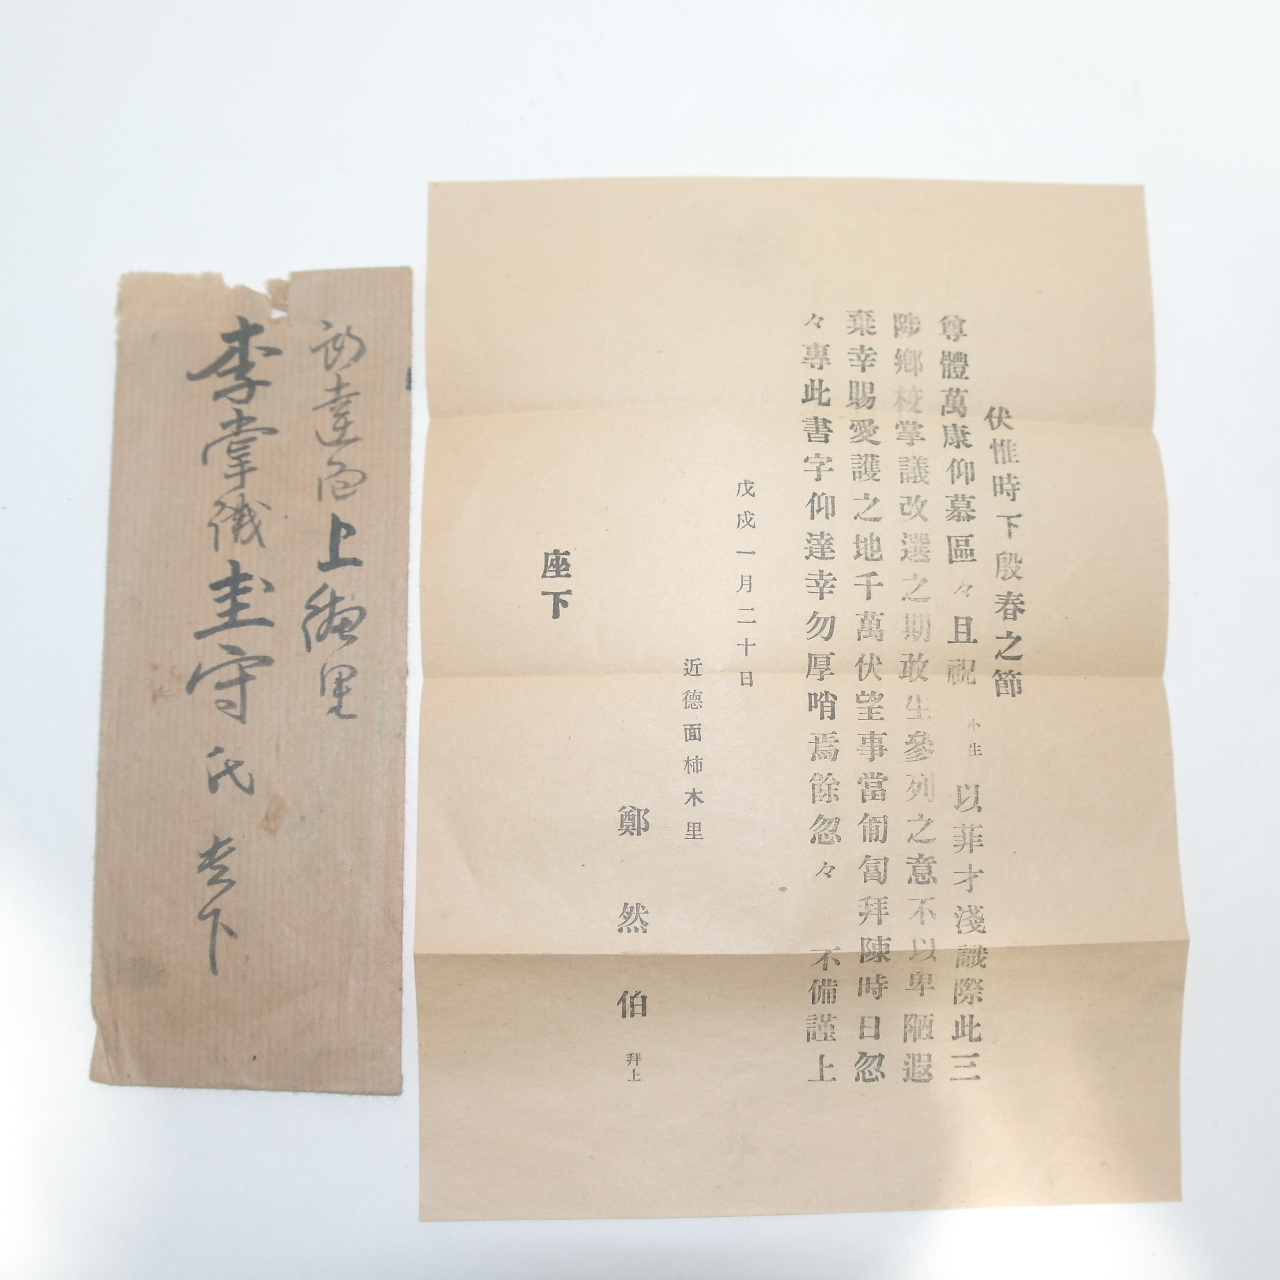 伏惟時下殷春之節
尊體萬康仰慕區々且祝 小生 以菲才淺識際此三
陟鄕校掌議改選之期敢生參列之意不以卑陋遐
棄幸賜愛護之地千萬伏望事當匍匐拜陳時日忽
々專此書字仰達幸勿厚哨焉餘忽々 不備謹上
戊戌一月二十日
近德面柿木里
鄭然伯 拜上
座下
上 里
李掌議圭守氏 座下